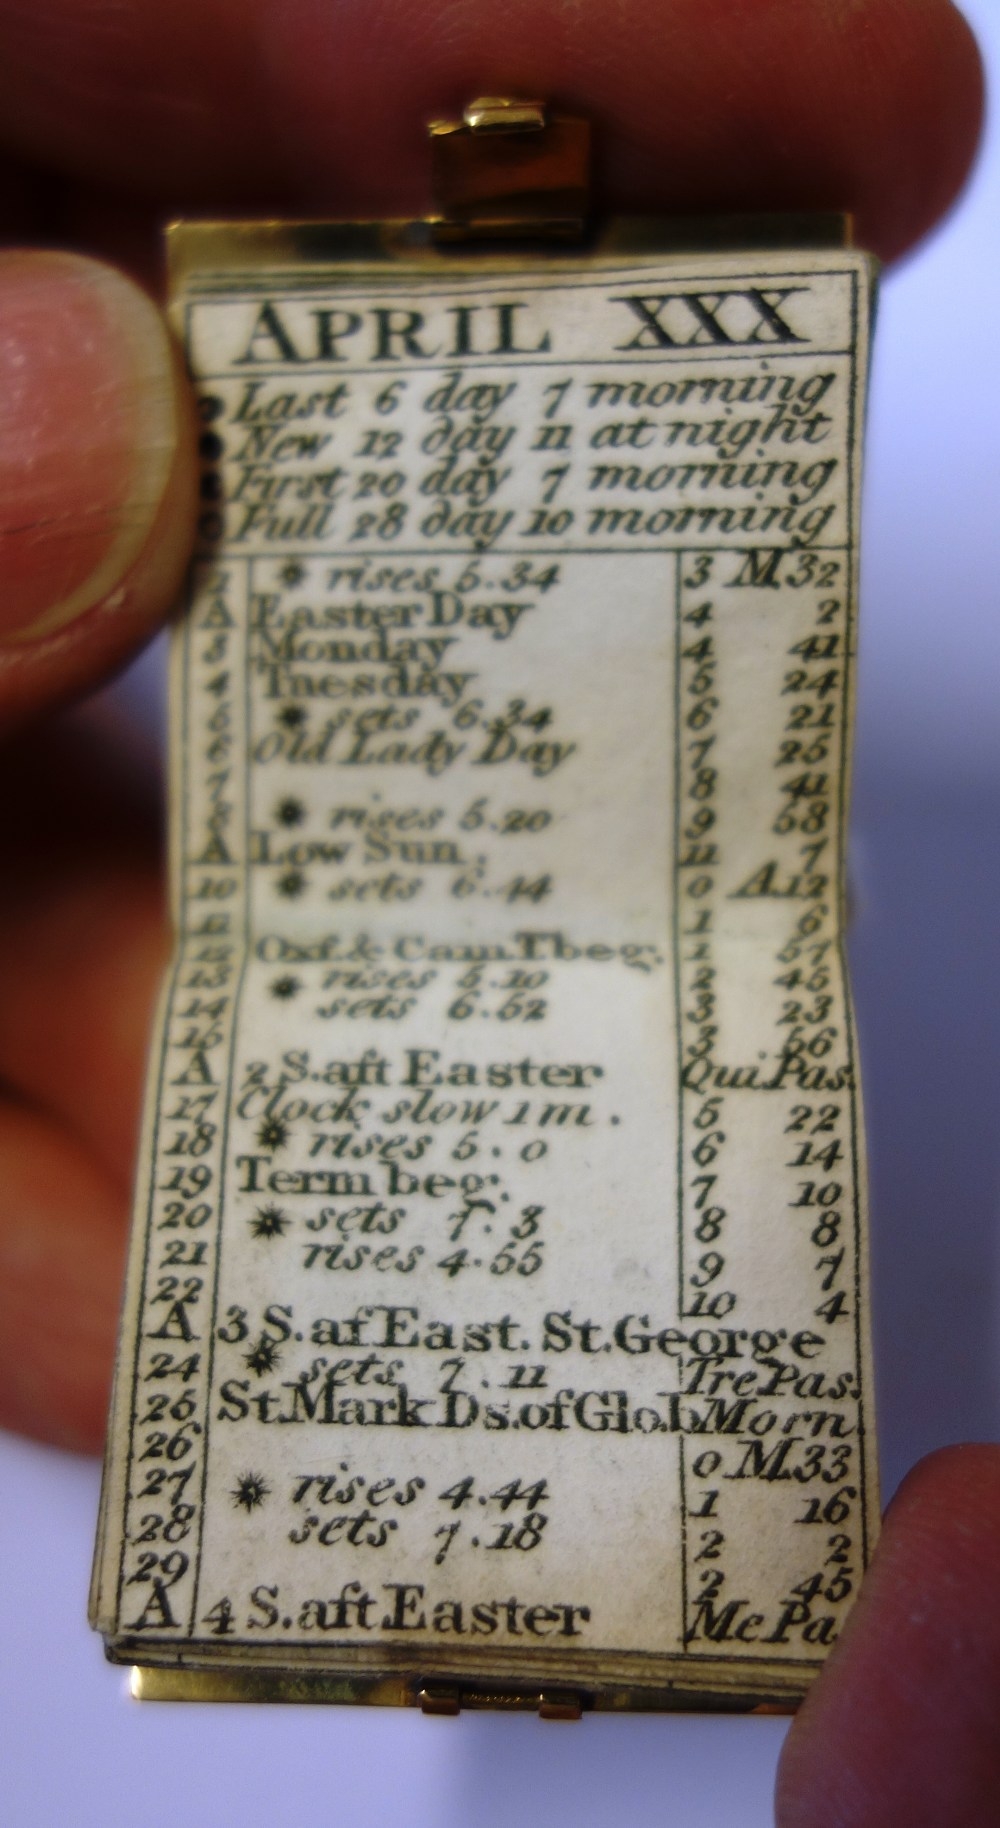 APRIL XXX
Last 6 day 7 morning
New 12 day 11 at night
First 20 day 7 morning
Full 28 day 10 morning
1 rises 5.34 3 M 32
A Easter Day 4 2
3 Monday 4 41
4 Tuesday 5 24
5 sets 6.34 6 21
6 Old Lady Day 7 25
7 8 41
8 rises 5.20 9 58
A Low Sun. 11 7
10 sets 6.44 0 A.12
11 1 6
12 Oxf.& Cam.T beg. 1 57
13 rises 5.10 2 45
14 sets 6.52 3 23
15 3 56
A 2 S.aft Easter Qui.Pas.
17 Clock slow 1 m. 5 22
18 rises 5.0 6 14
19 Term beg. 7 10
20 sets 7.3 8 8
21 rises 4.55 9 7
22 10 4
A 3 S.af East. St.George
24 sets 7.11 Tre Pas.
25 St.Mark Ds.of Glo.b Morn
26 0 M.33
27 rises 4.44 1 16
28 sets 7.18 2 2
29 2 45
A 4 S.aft.Easter Mc Pa